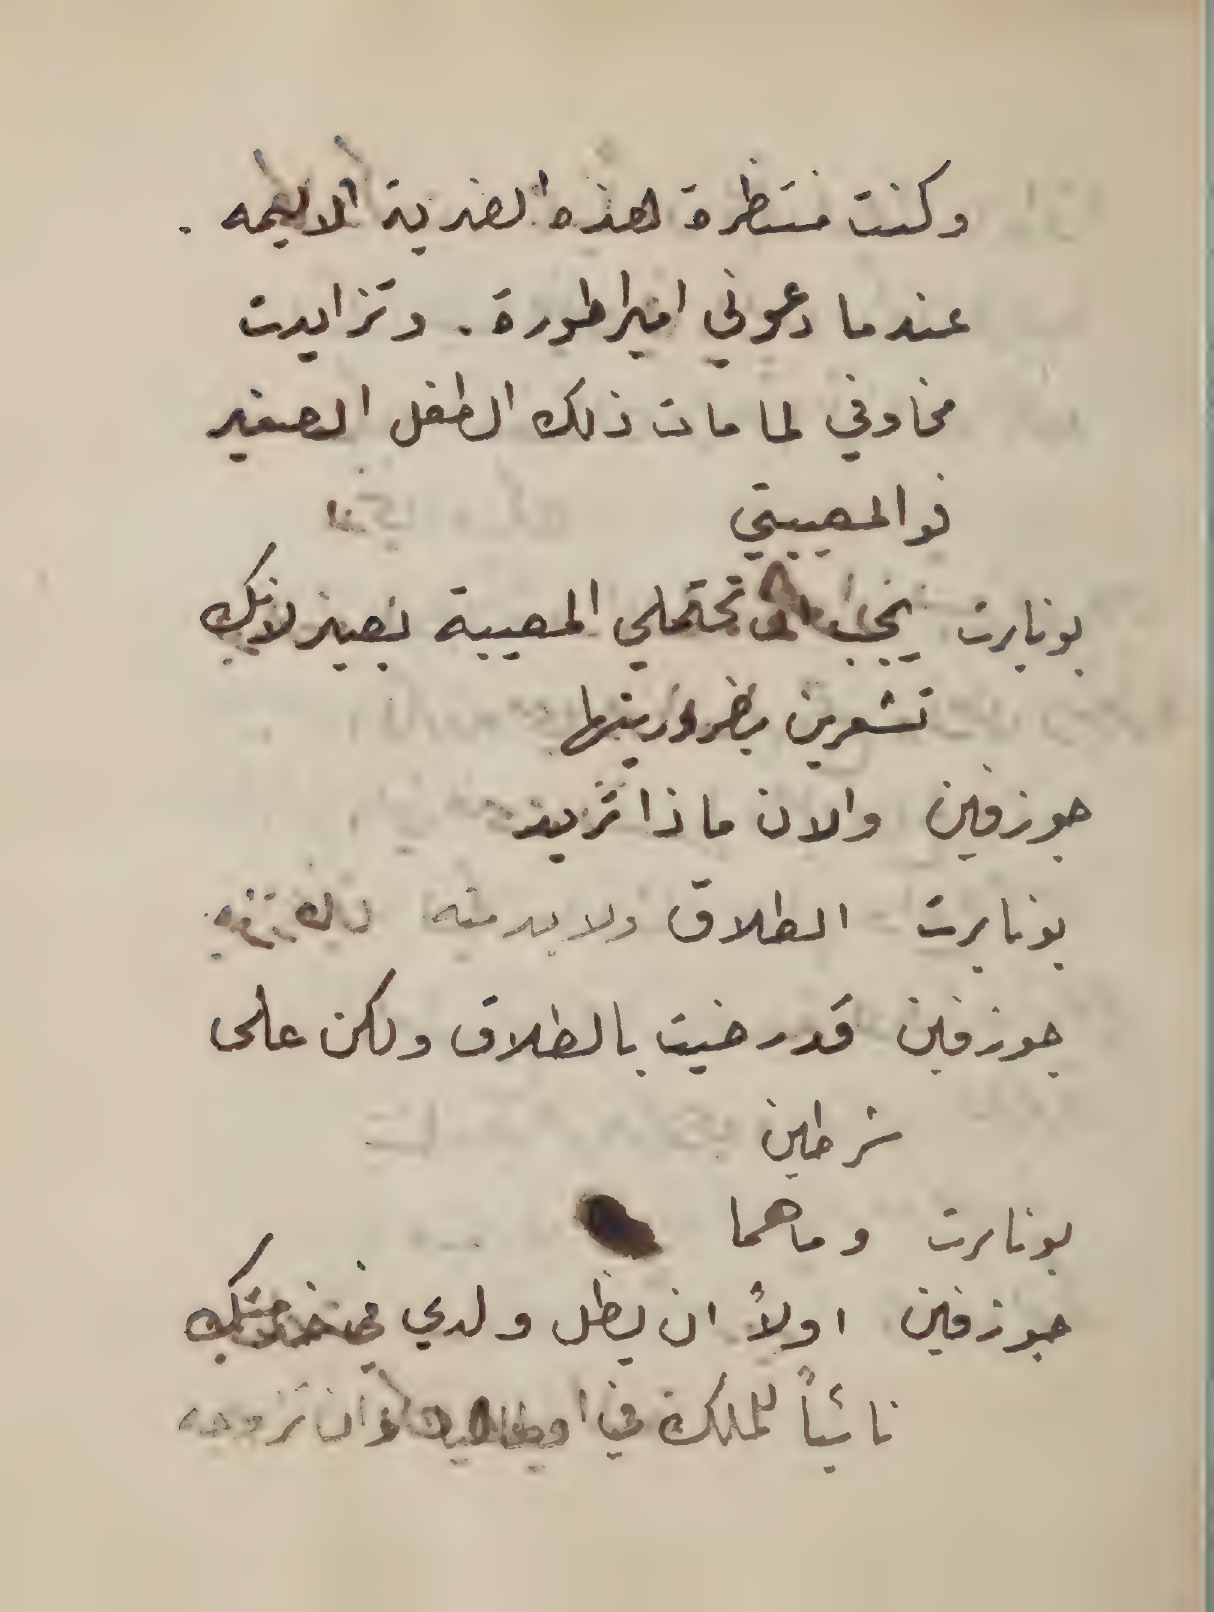 وكنت منتظرة لهذه الضربة الاليمه .
عندما دعوني امبراطورة . وتزايدت
مخاوفي لما مات ذلك الطفل الصغير
فوالمصيبتي
بونابرت يجب ان تحتملي المصيبة بصبر لانك
تشعرين بضرورتها
جوزفين والان ماذا تريد
بونابرت الطلاق ولا بد منه
جوزفين قد رضيت بالطلاق ولكن على
شرطين
بونابرت وما هما
جوزفين اولاً ان يظل ولدي في خدمتك
نائباً للملك في ايطاليا وان تزوجه